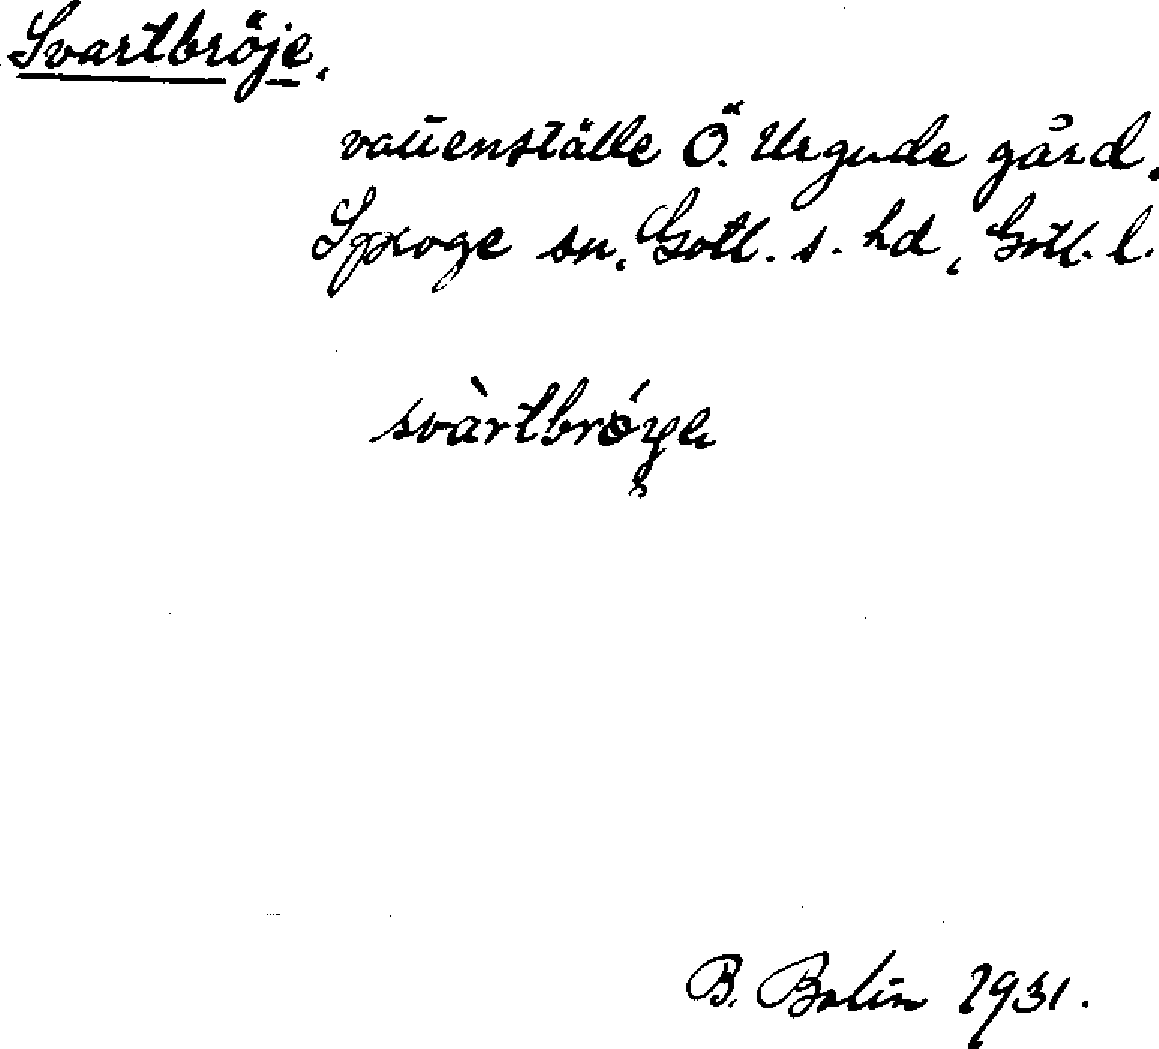 Svartbröje.
vattenställe Ö. Urgude gård.
Sproge sn, Gotl. s. hd, Gotl. l.
svàrtbróyę
B. Bolin 1931.